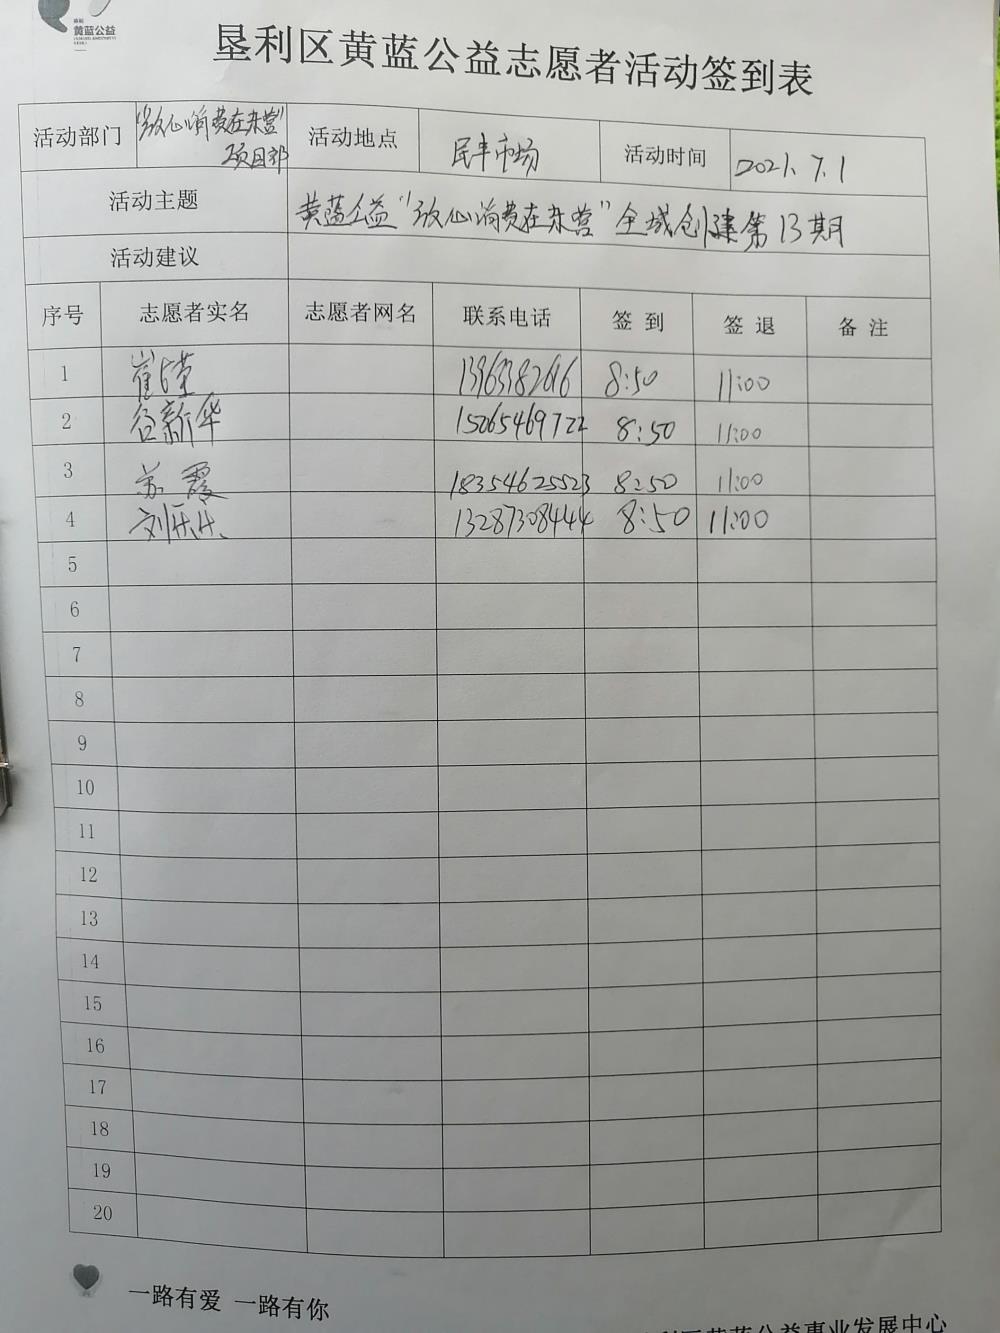 黄蓝公益
垦利区黄蓝公益志愿者活动签到表
活动部门 "放心消费在东营"项目部 活动地点 民丰市场 活动时间 2021.7.1
活动主题 黄蓝公益"放心消费在东营"全域创建第13期
活动建议
序号 志愿者实名 志愿者网名 联系电话 签到 签退 备注
1 崔 8:50 11:00
2 谷新华 15065469722 8:50 11:00
3 苏霞 18354625523 8:50 11:00
4 刘乐乐 13287308444 8:50 11:00
5
6
7
8
9
10
11
12
13
14
15
16
17
18
19
20
一路有爱 一路有你
区黄蓝公益事业发展中心